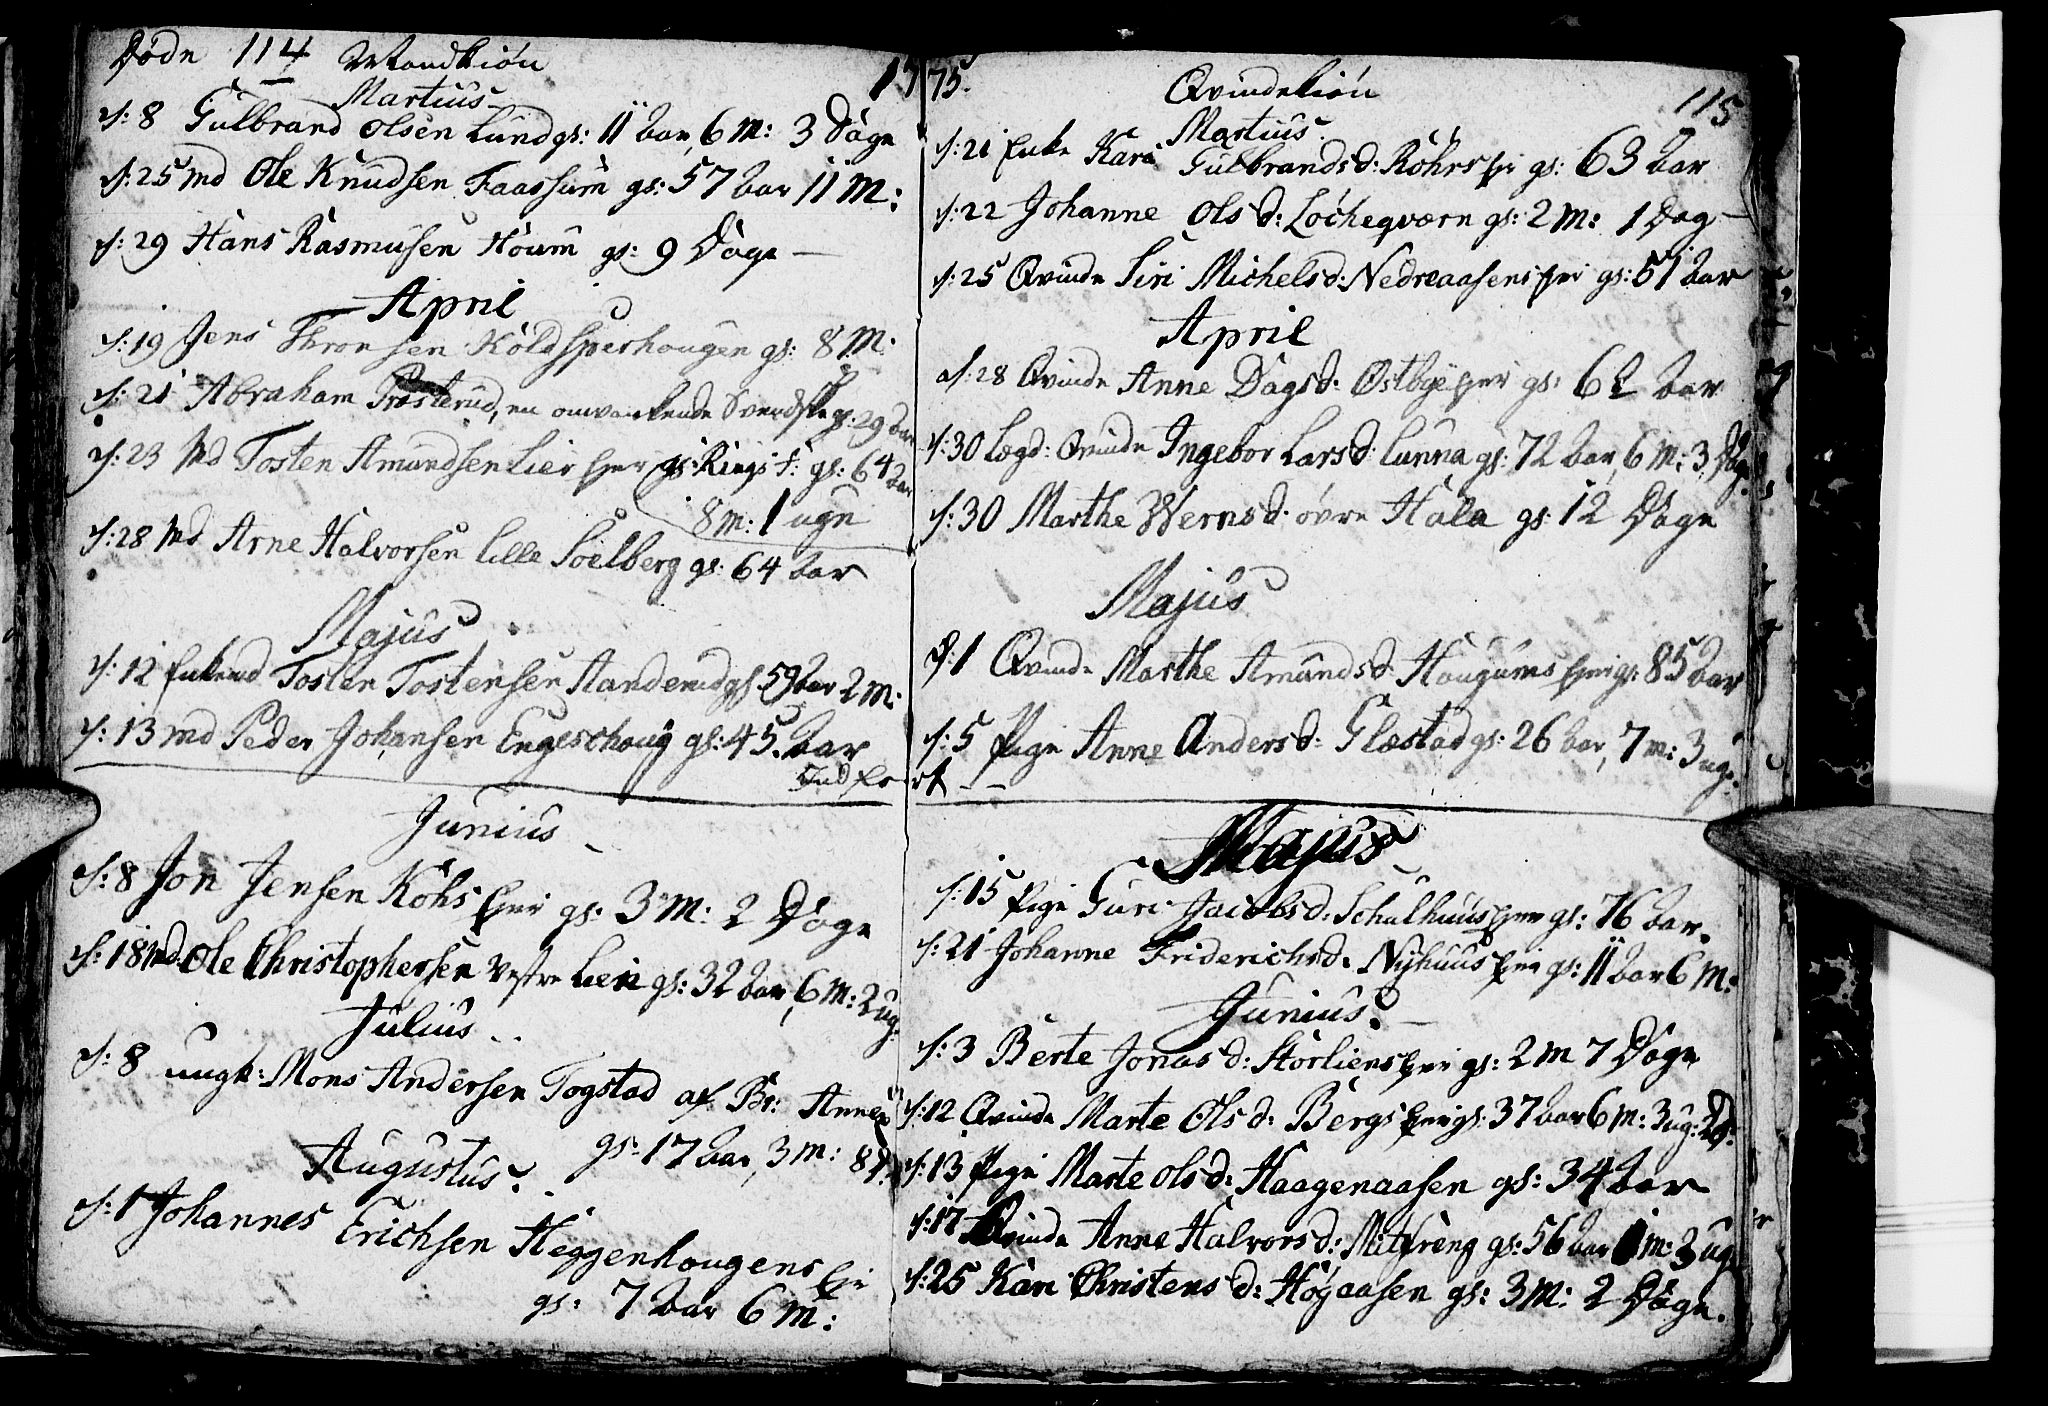 Døde 114 Mandkiøn 17
Martius
d: 8 Gulbrand Olsen Lund gl: 11 Aar, 6 M: 3 Dage
d: 25 Md Ole Knudsen Faassum gl: 57 Aar 11 M:
d: 29 Hans Rasmusen Houm gl: 9 Dage
April
d: 19 Jens Thronsen Koldsperhougen gl: 8 M:
d: 21 Abraham Prosterud, en omvankende gl: 29 Aar
d: 23 Md Tosten Amundsen Lier Eier gl: 64 Aar
8 m: 1 uge
d: 28 Md Arne Halvorsen Lille Soelberg gl: 64 Aar
Majus
d: 12 Enkemd Tosten Tostensen Aanderud gl: 59 Aar 2 M:
d: 13 Md Peder Johansen Engeschoug gl: 45 Aar
Indfør
Junius
d: 8 Jon Jensen Kohs Eier gl: 3 M: 2 Dage
d: 18 Md Ole Christophersen Vestre Lien gl: 32 Aar, 6 M: 2 ug:
Julius
d: 8 ungk: Mons Andersen Togstad af Br: Annex
gl: 17 Aar, 3 M: 8 D:
Augustus
d: 1 Johannes Erichsen Heggenhougens Eie
gl: 7 Aar 6 M:
75. Qvindekiøn 115
Martius
d: 21 Enke Kari Gulbrandsd: Rohrs Eie gl: 63 Aar
d: 22 Johanne Olsd: Locheqværn gl: 2 M: 1 Dag
d: 25 Qvinde Siri Michelsd: Nedreaasens Eie gl: 57 Aar
April
d: 28 Qvinde Anne Dagsd: Østbye Eier gl: 62 Aar
d: 30 Lægd: Qvinde Ingebor Larsd: Lunna gl: 72 Aar, 6 M: 3 Dage
d: 30 Marthe Wernsd: øvre Hala gl: 12 Dage
Majus
d: 1 Qvinde Marthe Amundsd: Hougums Eie gl: 85 Aar
d: 5 Pige Anne Andersd: Glæstad gl: 26 Aar, 7 m: 3 ug:
rt
Majus
d: 15 Pige Guri Jacobsd: Schulhuus Eier gl: 76 Aar.
d: 21 Johanne Friderichsd. Nyhuus Eie gl: 11 Aar 6 M:
Junius.
d: 3 Berte Jonasd: Storliens Eie gl: 2 M 7 Dage
d: 12 Qvinde Marte Olsd: Bergs Eie gl: 37 Aar 6 M: 3 ug: 2 D:
d: 13 Pige Marte Olsd: Haagenaasen gl: 34 Aar
d: 17 Qvinde Anne Halvorsd: Mitskeng gl: 56 Aar 1 m: 3 uge
d: 25 Kari Christensd: Høgaasen gl: 3 M: 2 Dage.